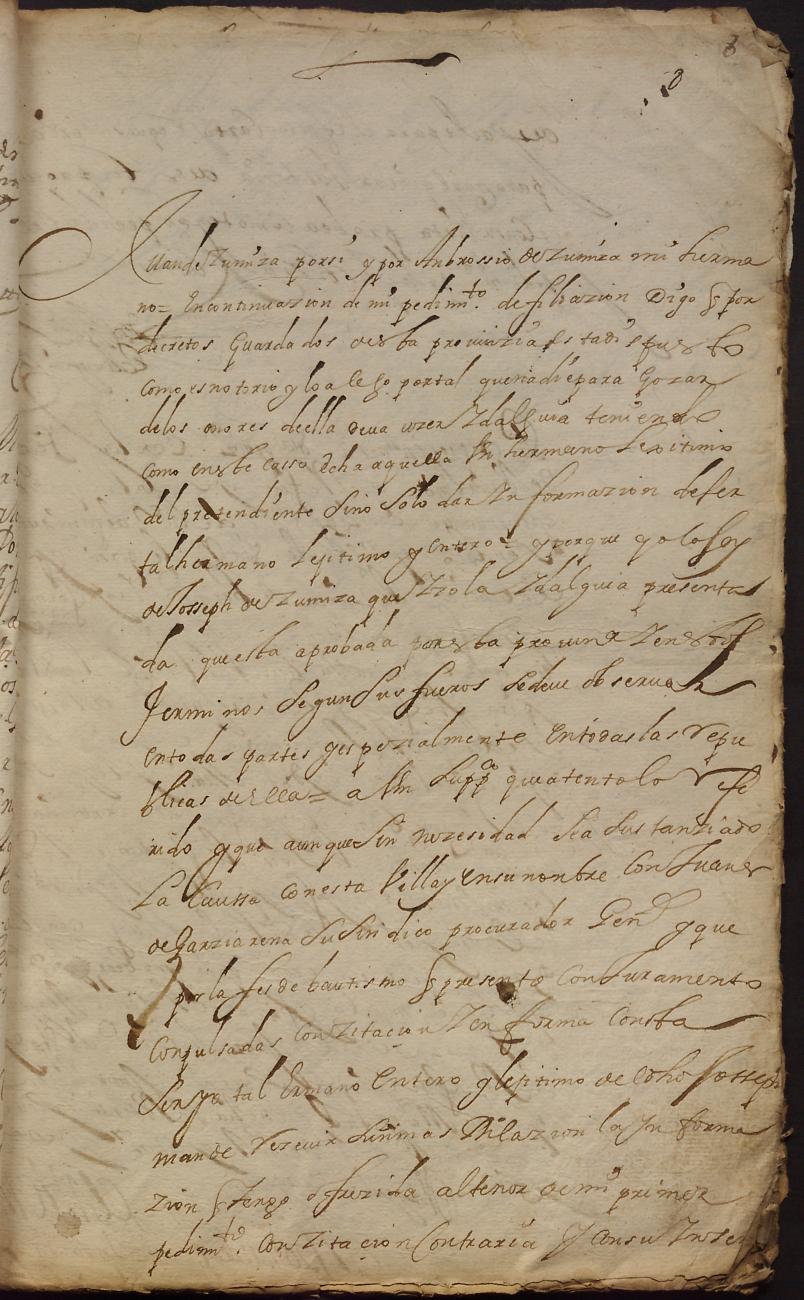 8
8
Juan de Zumiza por si y por Ambrossio de Zumiza mi herma
no = En continuazion de mi pedimto. de filiazion Digo q por
decretos Guardados de esta provinzia esta dispuesto
como es notorio y lo alego por tal que nadie para Gozar
de los onores de ella deva hazer Ydalguia teniendo
como en este casso hecha aquella Un hermano Lexitimo
del pretendiente Sino Solo dar Ynformazion de ser
tal hermano Lexitimo y entero = y porque yo lo soy
de Josseph de Zumiza que Yzo la Ydalguia presenta
da que esta aprobada por esta provinza Y en estos
Terminos Segun Sus fueros Se deve observar
en todas partes y espezialmente En todas las repu
blicas de Ella = a Vm Suppco que atento lo refe
rido y que aunque Sin nezesidad Sea Sustanziado
La Caussa con esta Villa y en su nonbre Con Juanes
de Garziarena Su Sindico procurador Genl y que
por la fes de bautismo q presento Con Juramento
Conpulsadas Con Zitacion Y en forma Consta
Ser yo tal Ermano Entero y lexitimo de dcho Josseph
mande rezevir Sin mas Dilazion la Ynforma
zion q tengo ofrezida al tenor de mi primer
pedimto. Con Zitacion Contraria Y